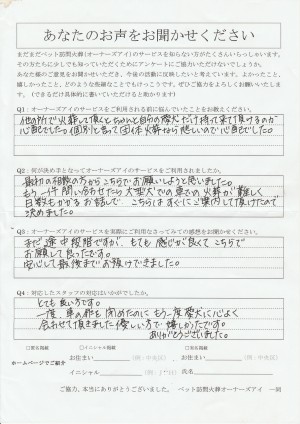 あなたのお声をお聞かせください
まだまだペット訪問火葬(オーナーズアイ)のサービスを知らない方がたくさんいらっしゃいます。
その方たちに少しでも知っていただくためにアンケートにご協力いただけないでしょうか。
あなた様のご意見をお聞かせいただき、今後の活動に反映したいと考えています。よかったこと、
嬉しかったこと、どのような些細なことでもけっこうです。ぜひご協力をよろしくお願いいたします。
(できるだけ具体的に書いていただけると助かります)
Q1:オーナーズアイのサービスをご利用される前に悩んでいたことをお教えください。
他の所で火葬して頂くとちゃんと自分の愛犬だけ持って来て頂けるのか
心配でした。
Q2:何が決め手となってオーナーズアイのサービスをご利用されましたか。
最初の相談の方からこちらでお願いしようと思いました。
もう一件問い合わせたら大型犬での車での火葬が難しく
日数もかかるお話しで、こちらはすぐにご案内して頂けたので
決めました。
Q3:オーナーズアイのサービスを実際にご利用なさってみての感想をお聞かせください。
まだ途中段階ですが、とても感じが良くてこちらで
お願いして良かったです。
安心して最後までお預けできました。
Q4:対応したスタッフの対応はいかがでしたか。
とても良い方です。
一度、車の扉も閉めたのにもう一度愛犬に心よく
合わせて頂きました(優しい方で嬉しかったです。
ありがとうございました。
□実名掲載 □イニシャル掲載 □匿名掲載
ホームページでご紹介
お住まい
お住まい
イニシャル
氏名
ご協力、本当にありがとうございました。 ペット訪問火葬オーナーズアイ 一同